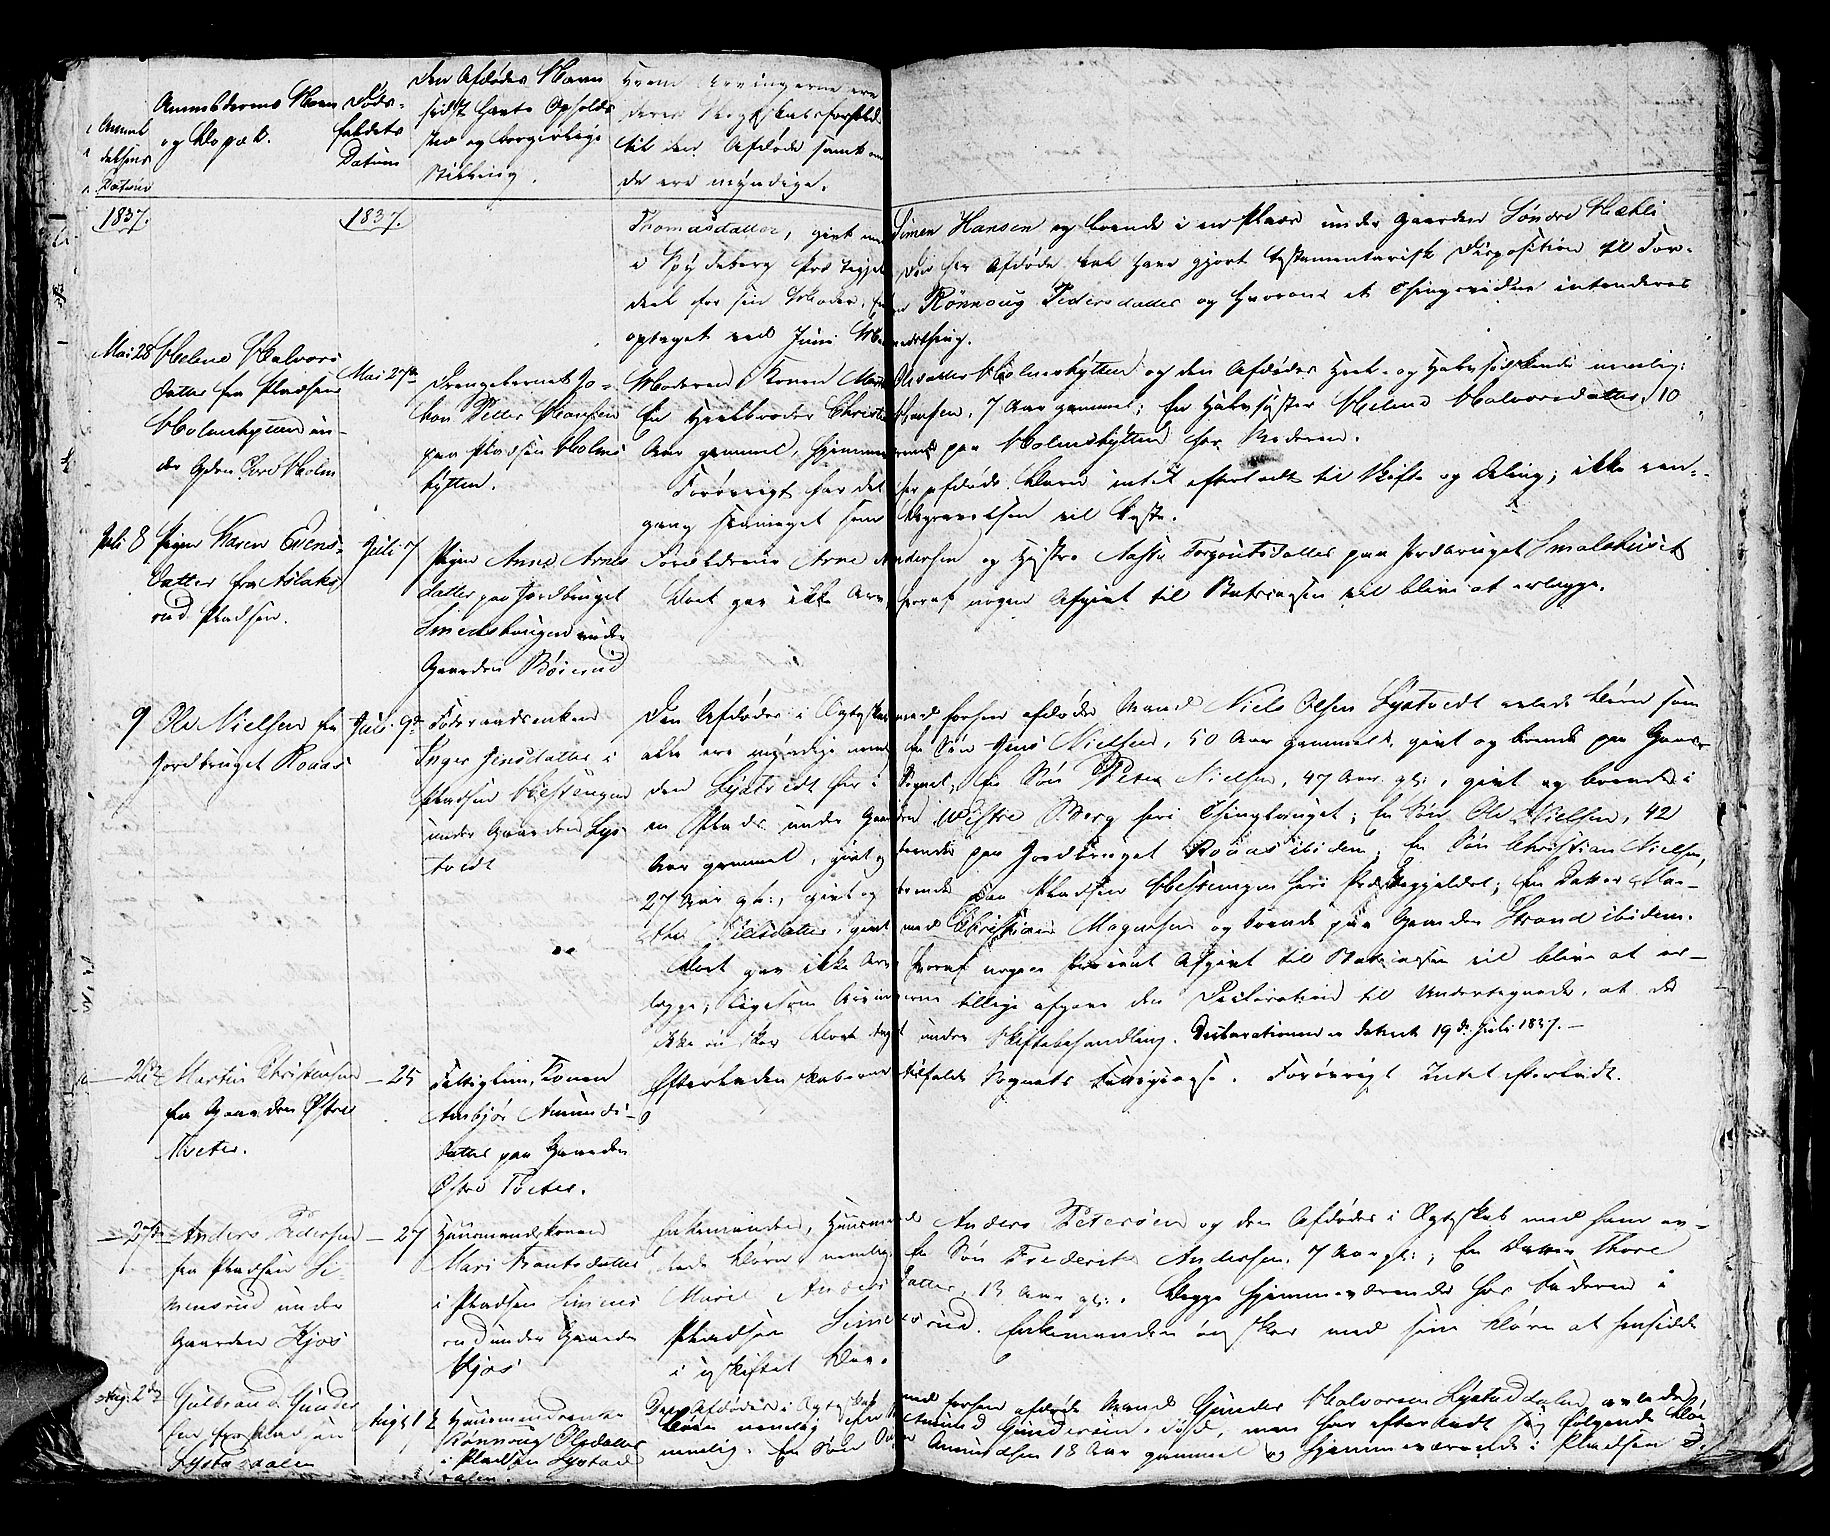 Anmel
delsens
Datum
Anmelderens Navn
og Bopæl.
Døds-
faldets
Datum
Den Afdødes Navn
sidst havte Opholds
Sted og borgerlige
Stilling.
Hvem Arvingerne ere
deres Slægtskabsforhold
til den Afdøde samt om
de ere myndige.
1837.
1837.
Thomasdatter, gift med Simen Hansen og boende i en Plads under Gaarden Søndre Mækli
i Spydeberg Præstegjeld. Den her Afdøde skal have gjort testamentarisk Disposition til For-
deel for sin Moder, Rønnoug Pedersdatter og hvorom et Thingsvidne intenderes
optaget ved Juni Maanedsthing.
Mai 28
Helene Halvors
datter fra Pladsen
Holmshytten un-
der Gden Holm
Mai 27de
Drengebarnet Jo-
han Peter Hansen
paa Pladsen Holms
hytten.
Moderen, Konen Mari Olsdatter Holmshytten og den Afdødes Heel- og Halvsødskende nemlig:
En Heelbroder Christian Hansen, 7 Aar gammel; En Halvsøster Helene Halvorsdatter, 10
Aar gammel, hjemmeværende paa Holmshytten hos Moderen.
Forøvrigt har det her afdøde Barn intet efterladt til Skifte og Deling; ikke en-
gang saameget som Begravelsen vil koste.
Juli 8
Pigen Karen Evens-
datter fra Aslaks
rud Pladsen.
Juli 7
Pigen Anne Arnes
datter paa Jordbruget
Smedshaugen under
Gaarden Bøierud
Forældrene Arne Andersen og Hustro Aasta Torgautsdatter paa Jordbruget Smalshuset
Boet gav ikke Arv, hvoraf nogen Afgivt til Statscassen vil blive at erlægge.
9
Ole Nielsen fra
Jordbruget Roaas
Juli 9de
Føderaadsenken
Inger Jensdatter i
Pladsen Hestengen
under Gaarden Lys-
tvedt
Den Afdødes i Ægteskab med forhen afdøde Mand Niels Olsen Lystvedt avlede Børn som
alle ere myndige nemlig En Søn Jens Nielsen, 50 Aar gammel, givt og boende paa Gaar-
den Lystvedt her i Sognet; En Søn Peter Nielsen, 47 Aar gl:, givt og boende i
en Plads under Gaarden Westre Berg heri Thinglauget; En Søn Ole Nielsen, 42
Aar gammel, givt og boende paa Jordbruget Roaas ibidem; En Søn Christian Nielsen,
27 Aar gl:, givt og boende paa Pladsen Hestengen heri Præstegjeldet; En Datter Mar-
the Nielsdatter, givt med Christian Magnesen og boende paa Gaarden Strand ibidem.
Boet gav ikke Arv, hvoraf nogen procent Afgivt til Statscassen vil blive at er-
lægge; ligesom Arvingerne tillige afgave den Declaration til Undertegnede, at de
ikke ønsker Boet taget under Skiftebehandling. Declarationen er dateret 19de Juli 1837.
— 26de
Martin Christensen
fra Gaarden Østre
Tveter.
— 25
Fattiglem, Konen
Anbjør Amunds-
datter paa Gaarden
Østre Tveter.
Efterladenskaberne tilfaldt Sognets Fattigcasse. Forøvrigt Intet efterladt.
— 27de
Anders Pedersen
fra Pladsen Si-
mensrud under
Gaarden Kjos
— 27
Huusmandskonen
Mari Knutsdatter
i Pladsen Simens
rud under Gaarden
Kjos
Enkemanden, Huusmand Anders Petersen og den Afdødes i Ægteskab med ham av-
lede Børn nemlig: En Søn Frederik Andersen, 7 Aar gl:; En Datter Thore
Marie Andersdatter, 13 Aar gl:. Begge hjemmeværende hos Faderen i
Pladsen Simensrud. Enkemanden ønsker med sine Børn at hensidde
i uskiftet Boe.
Aug. 2de
Gulbrand Gunder
sen fra Pladsen
Lystaddalen
Augt 1ste
Huusmandsenken
Rønnoug Olsdatter
i Pladsen Lystad
dalen.
Den Afdødes i Ægteskab med forhen afdøde Mand Gunder Halvorsen Lystaddalen avlede
Børn nemlig: Amund Gundersen, død, men har efterladt sig følgende Børn
nemlig: En Søn Amundsen 18 Aar gammel og hjemmeværende i Pladsen